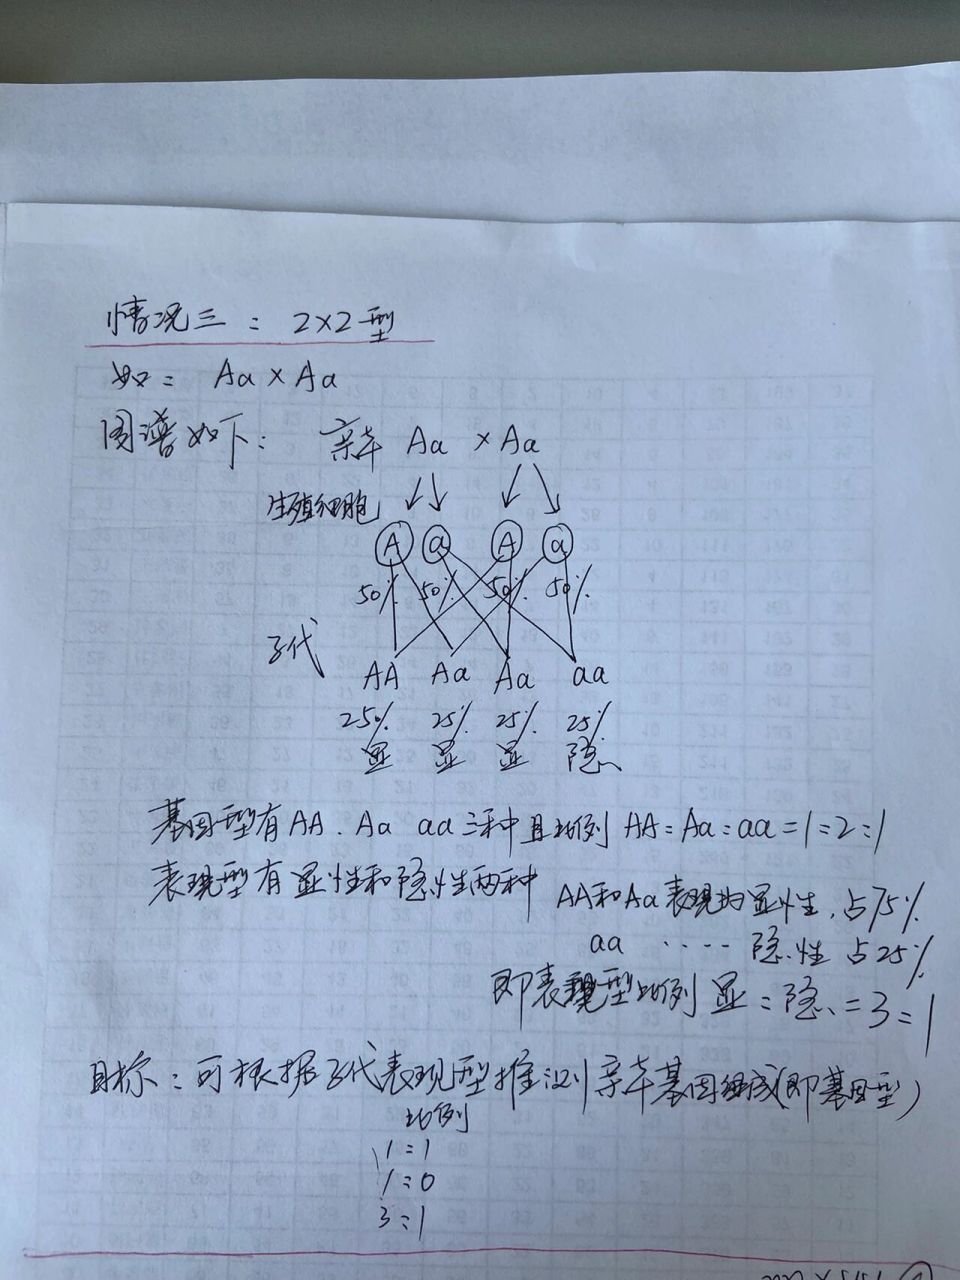 情况三：2×2型
如：Aa×Aa
图谱如下：亲本 Aa × Aa
生殖细胞
A a A a
50% 50% 50% 50%
子代
AA Aa Aa aa
25% 25% 25% 25%
显 显 显 隐
基因型有AA、Aa aa三种且比例 AA:Aa:aa=1:2:1
表现型有显性和隐性两种
AA和Aa表现为显性，占75%
aa ····· 隐性 占25%
即表现型比例 显:隐=3:1
目标：可根据子代表现型推测亲本基因组成(即基因型)
比例
1:1
1:0
3:1